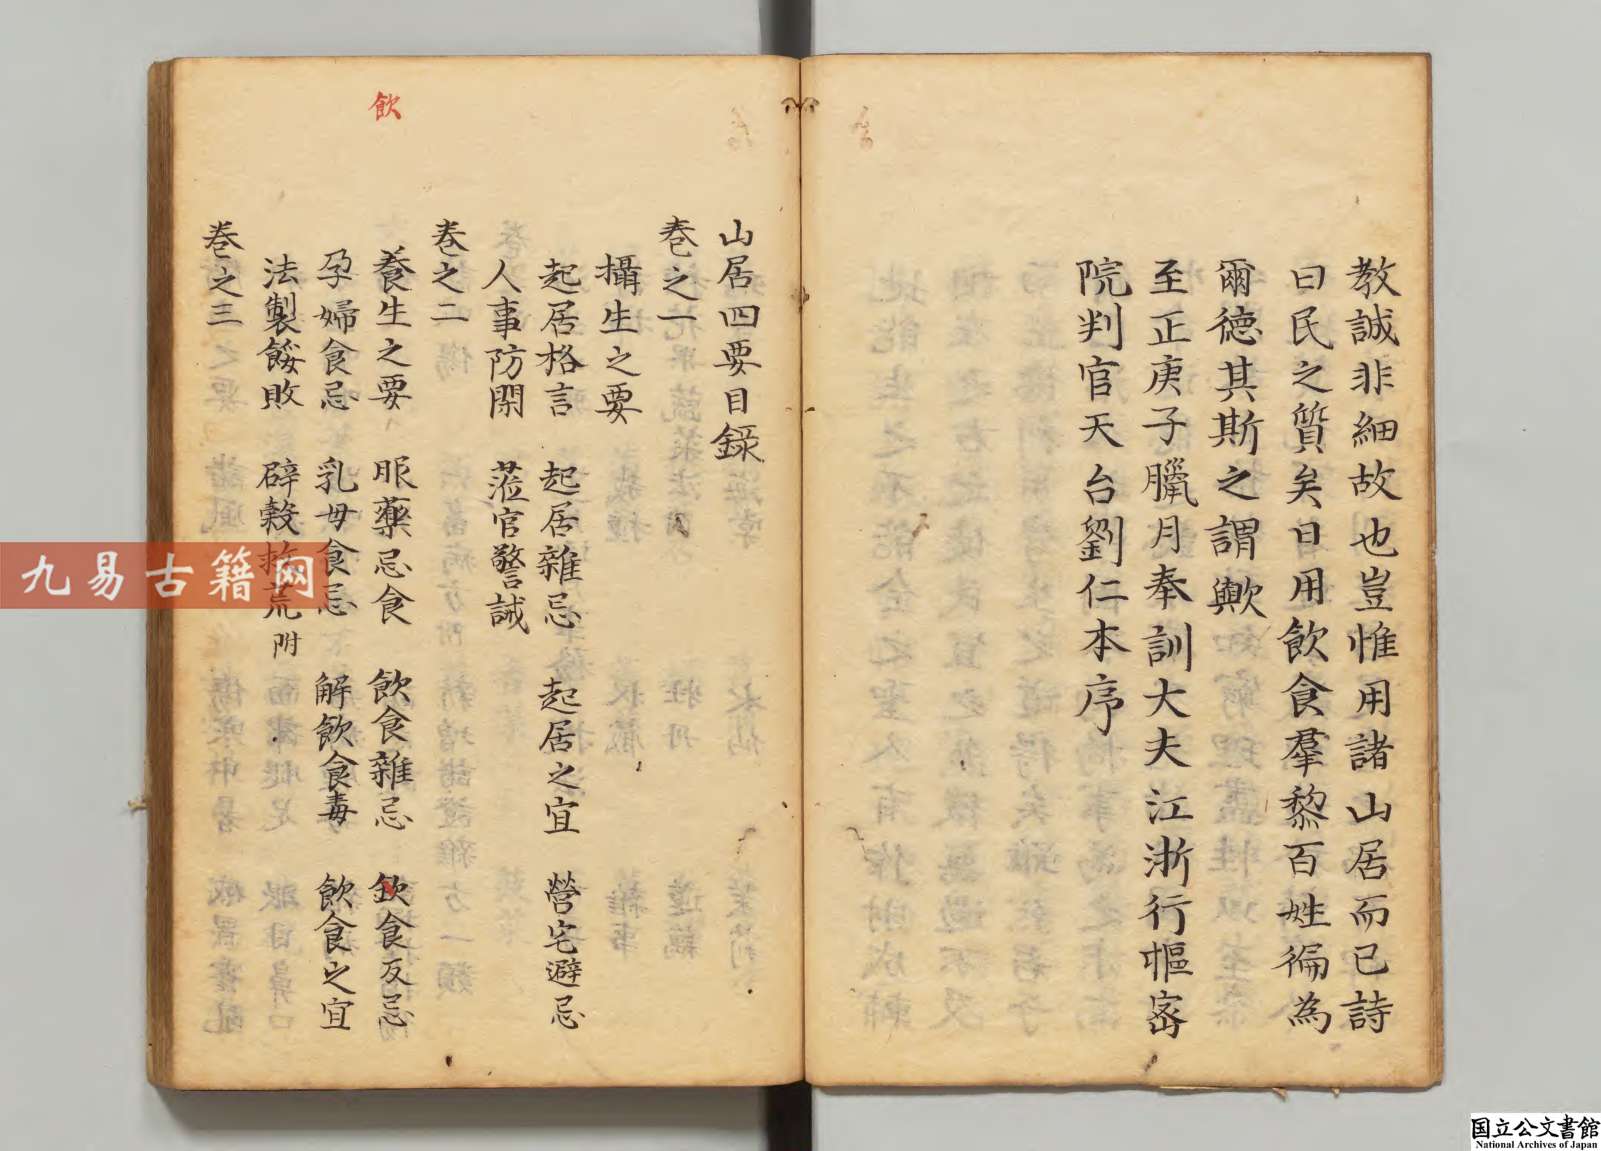 教誡非細故也豈惟用諸山居而已詩
曰民之質矣日用飲食羣黎百姓徧為
爾德其斯之謂歟
至正庚子臘月奉訓大夫江浙行樞密
院判官天台劉仁本序
飲
山居四要目錄
卷之一
攝生之要
起居格言 起居雜忌 起居之宜 營宅避忌
人事防閑 蒞官警誡
卷之二
養生之要 服藥忌食 飲食雜忌 飲食反忌
孕婦食忌 乳母食忌 解飲食毒 飲食之宜
法製餒敗 辟穀救荒附
卷之三
九易古籍网
国立公文書館
National Archives of Japan